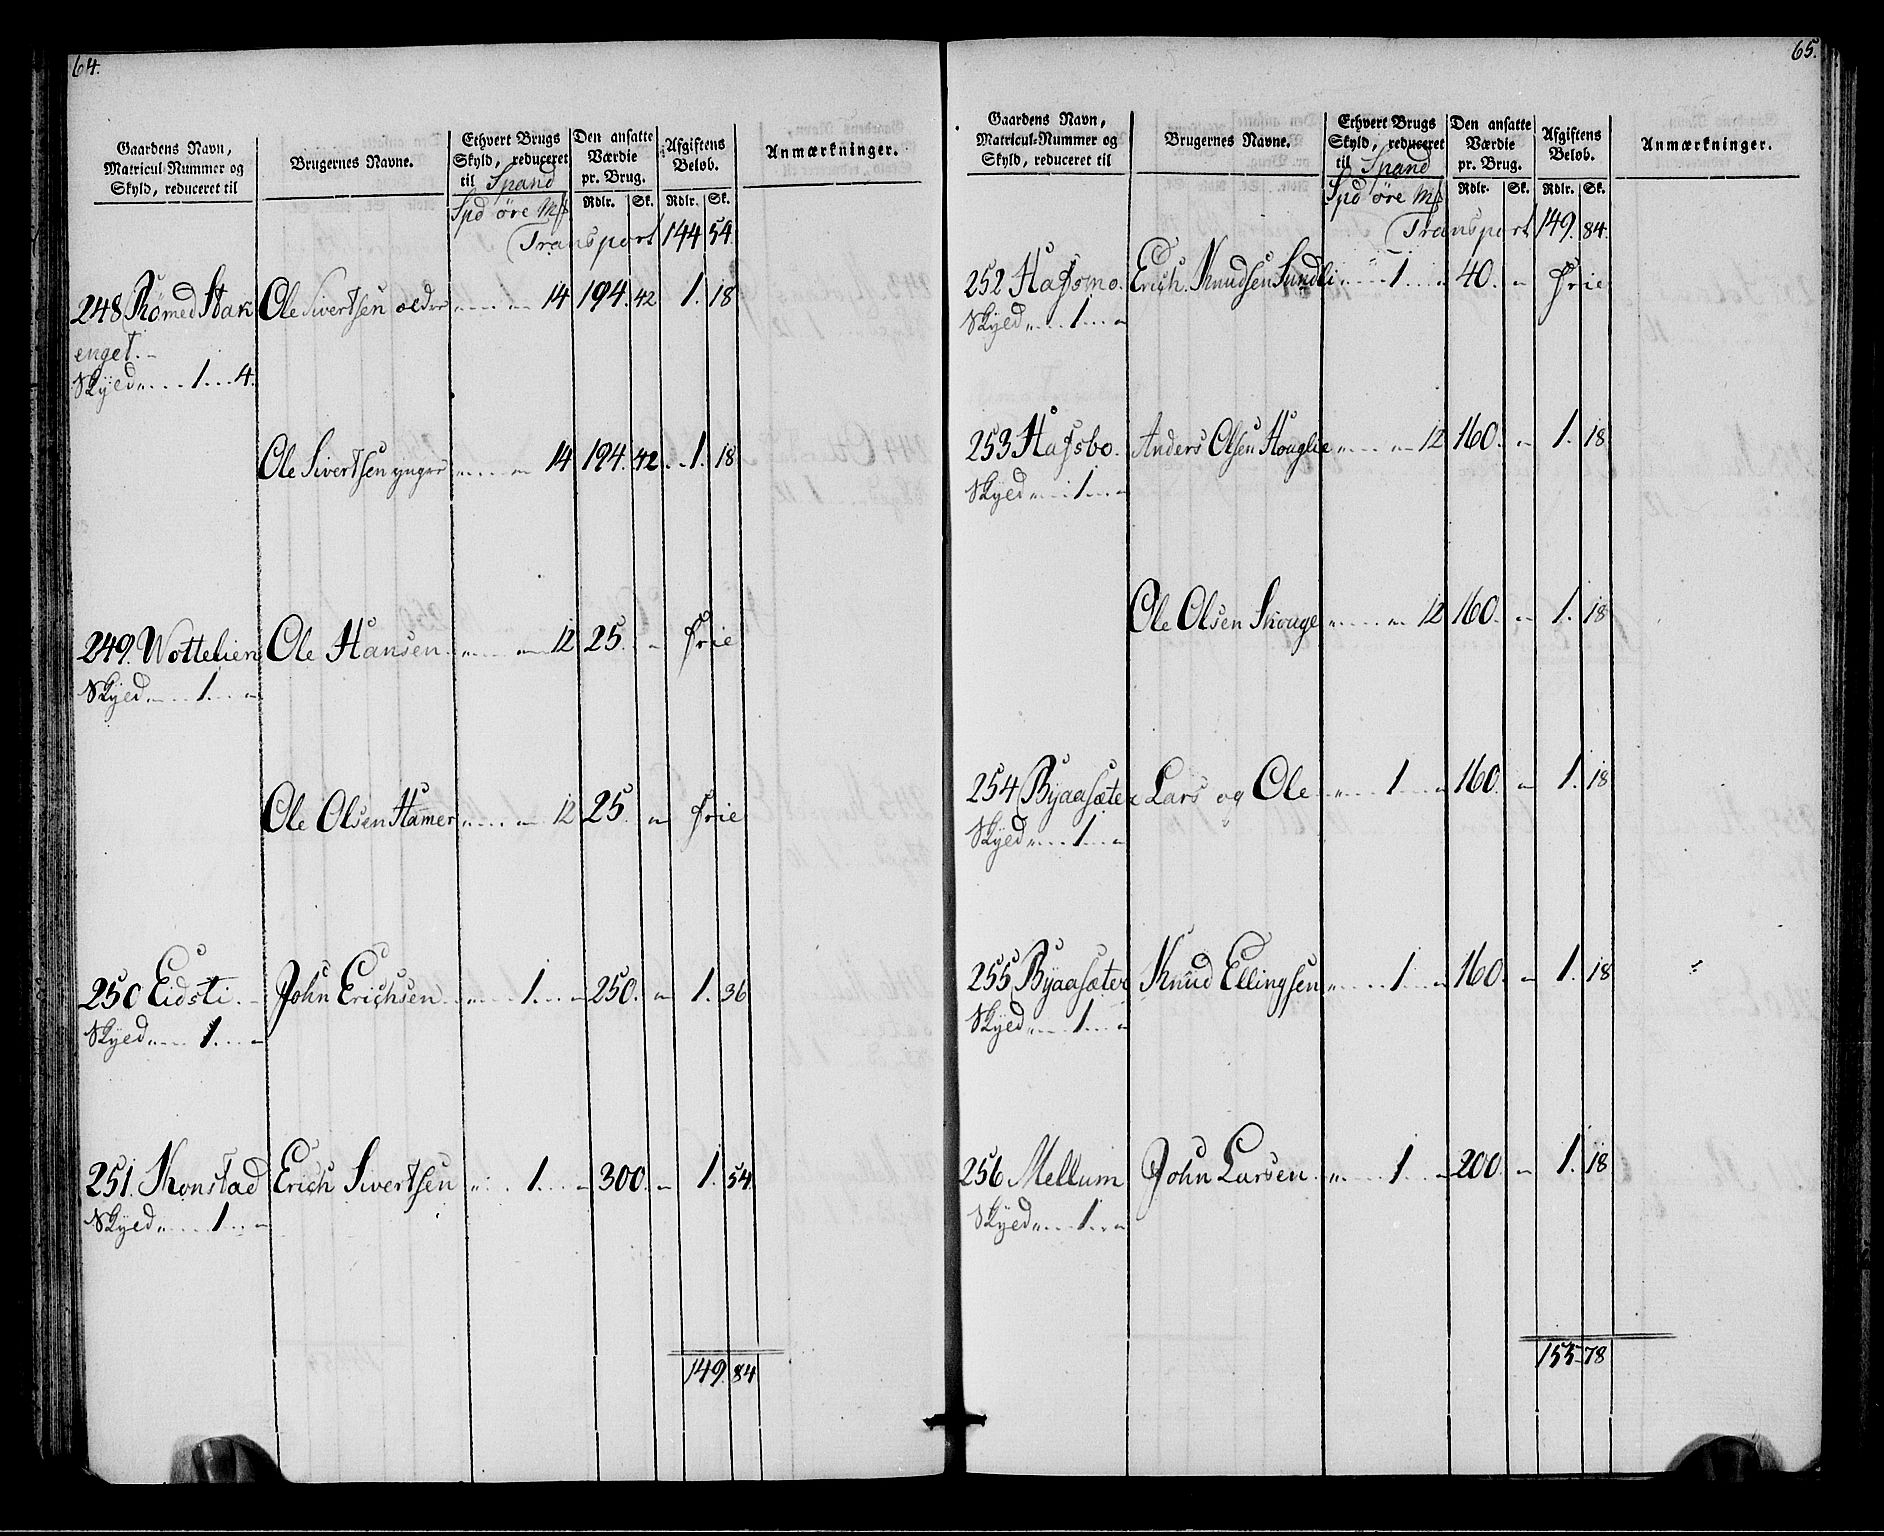 64.
Gaardens Navn, Matricul-Nummer og Skyld, reduceret til
Brugernes Navne.
Ethvert Brugs Skyld, reduceret til Spand
Den ansatte Værdie pr. Brug.
Afgiftens Beløb.
Anmærkninger.
Spd öre Mf
Rdlr. Sk. Rdlr. Sk.
Transport 144 54.
248 Römed Stak Ole Sivertsen ælder " .... " 14 194. 42 1. 18
enget.
Skyld " .... 1 ... 4.
Ole Sivertsen yngre " .... " 14 194. 42. 1. 18
249. Wottelien Ole Hansen " .... " 12 25. " frie
Skyld " .... 1 ... "
Ole Olsen Hamer " .... " 12 25. " frie
250 Eidsti. John Erichsen " .... 1 .... " 250. " 1. 36
Skyld " .... 1 ... "
251. Konstad Erich Sivertsen " .... 1 .... " 300. " 1. 54.
Skyld " .... 1 ... "
149. 84
65.
Gaardens Navn, Matricul-Nummer og Skyld, reduceret til
Brugernes Navne.
Ethvert Brugs Skyld, reduceret til Spand
Den ansatte Værdie pr. Brug.
Afgiftens Beløb.
Anmærkninger.
Spd öre Mf
Rdlr. Sk. Rdlr. Sk.
Transport 149. 84.
252 Hafsmo. Erich Knudsen Sundli " .... 1 .... " 40. " frie
Skyld " .... 1 ... "
253 Hafsbo. Anders Olsen Houglie " .... " 12 160. " 1. 18
Skyld " .... 1 ... "
Ole Olsen Skouge " .... " 12 160. " 1. 18
254 Byaasæter Lars og Ole " .... 1 .... " 160. " 1. 18
Skyld " .... 1 ... "
255 Byaasæter Knud Ellingsen " .... 1 .... " 160. " 1. 18
Skyld " .... 1 ... "
256 Mellum John Larsen " .... 1 .... " 200. " 1. 18
Skyld " .... 1 ... "
155 78